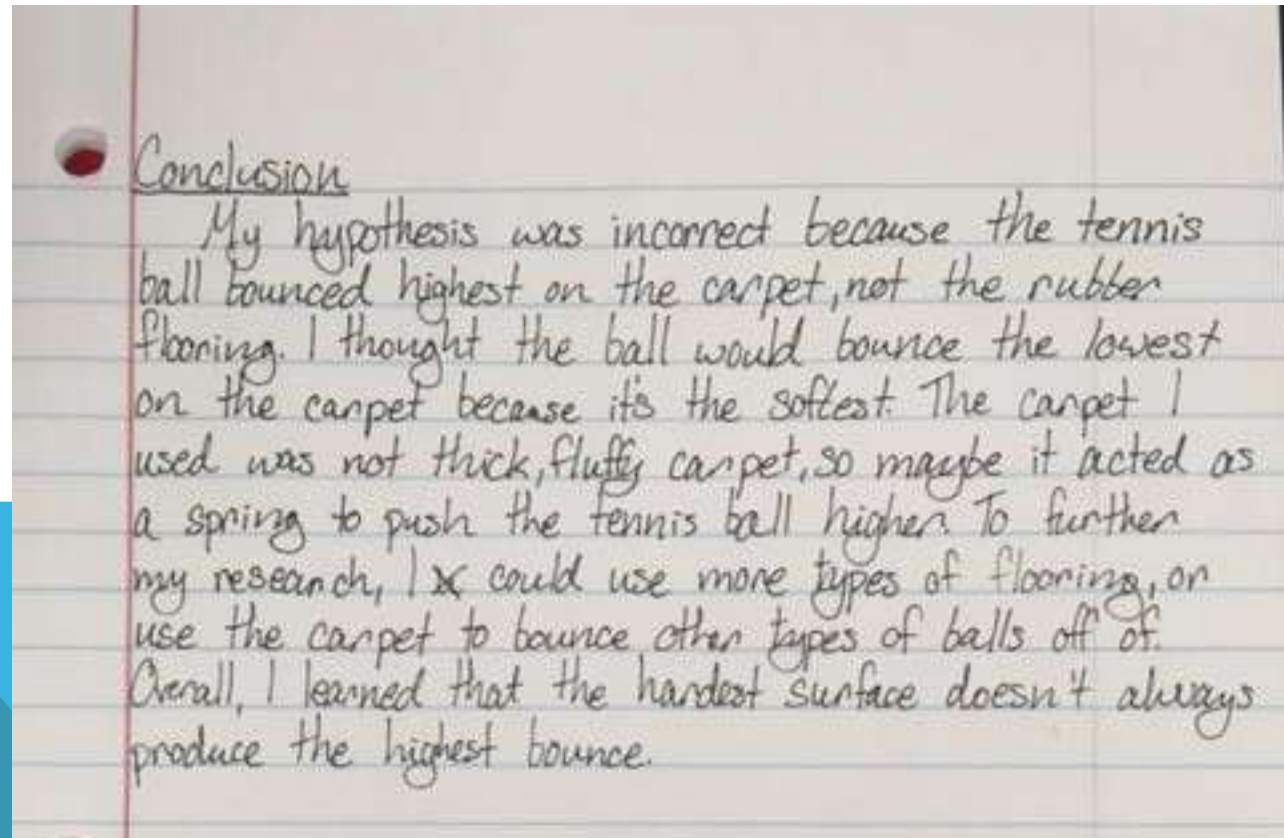 Conclusion
My hypothesis was incorrect because the tennis
ball bounced highest on the carpet, not the rubber
flooring. I thought the ball would bounce the lowest
on the carpet because it's the softest. The carpet I
used was not thick, fluffy carpet, so maybe it acted as
a spring to push the tennis ball higher. To further
my research, I could use more types of flooring, or
use the carpet to bounce other types of balls off of.
Overall, I learned that the hardest surface doesn't always
produce the highest bounce.